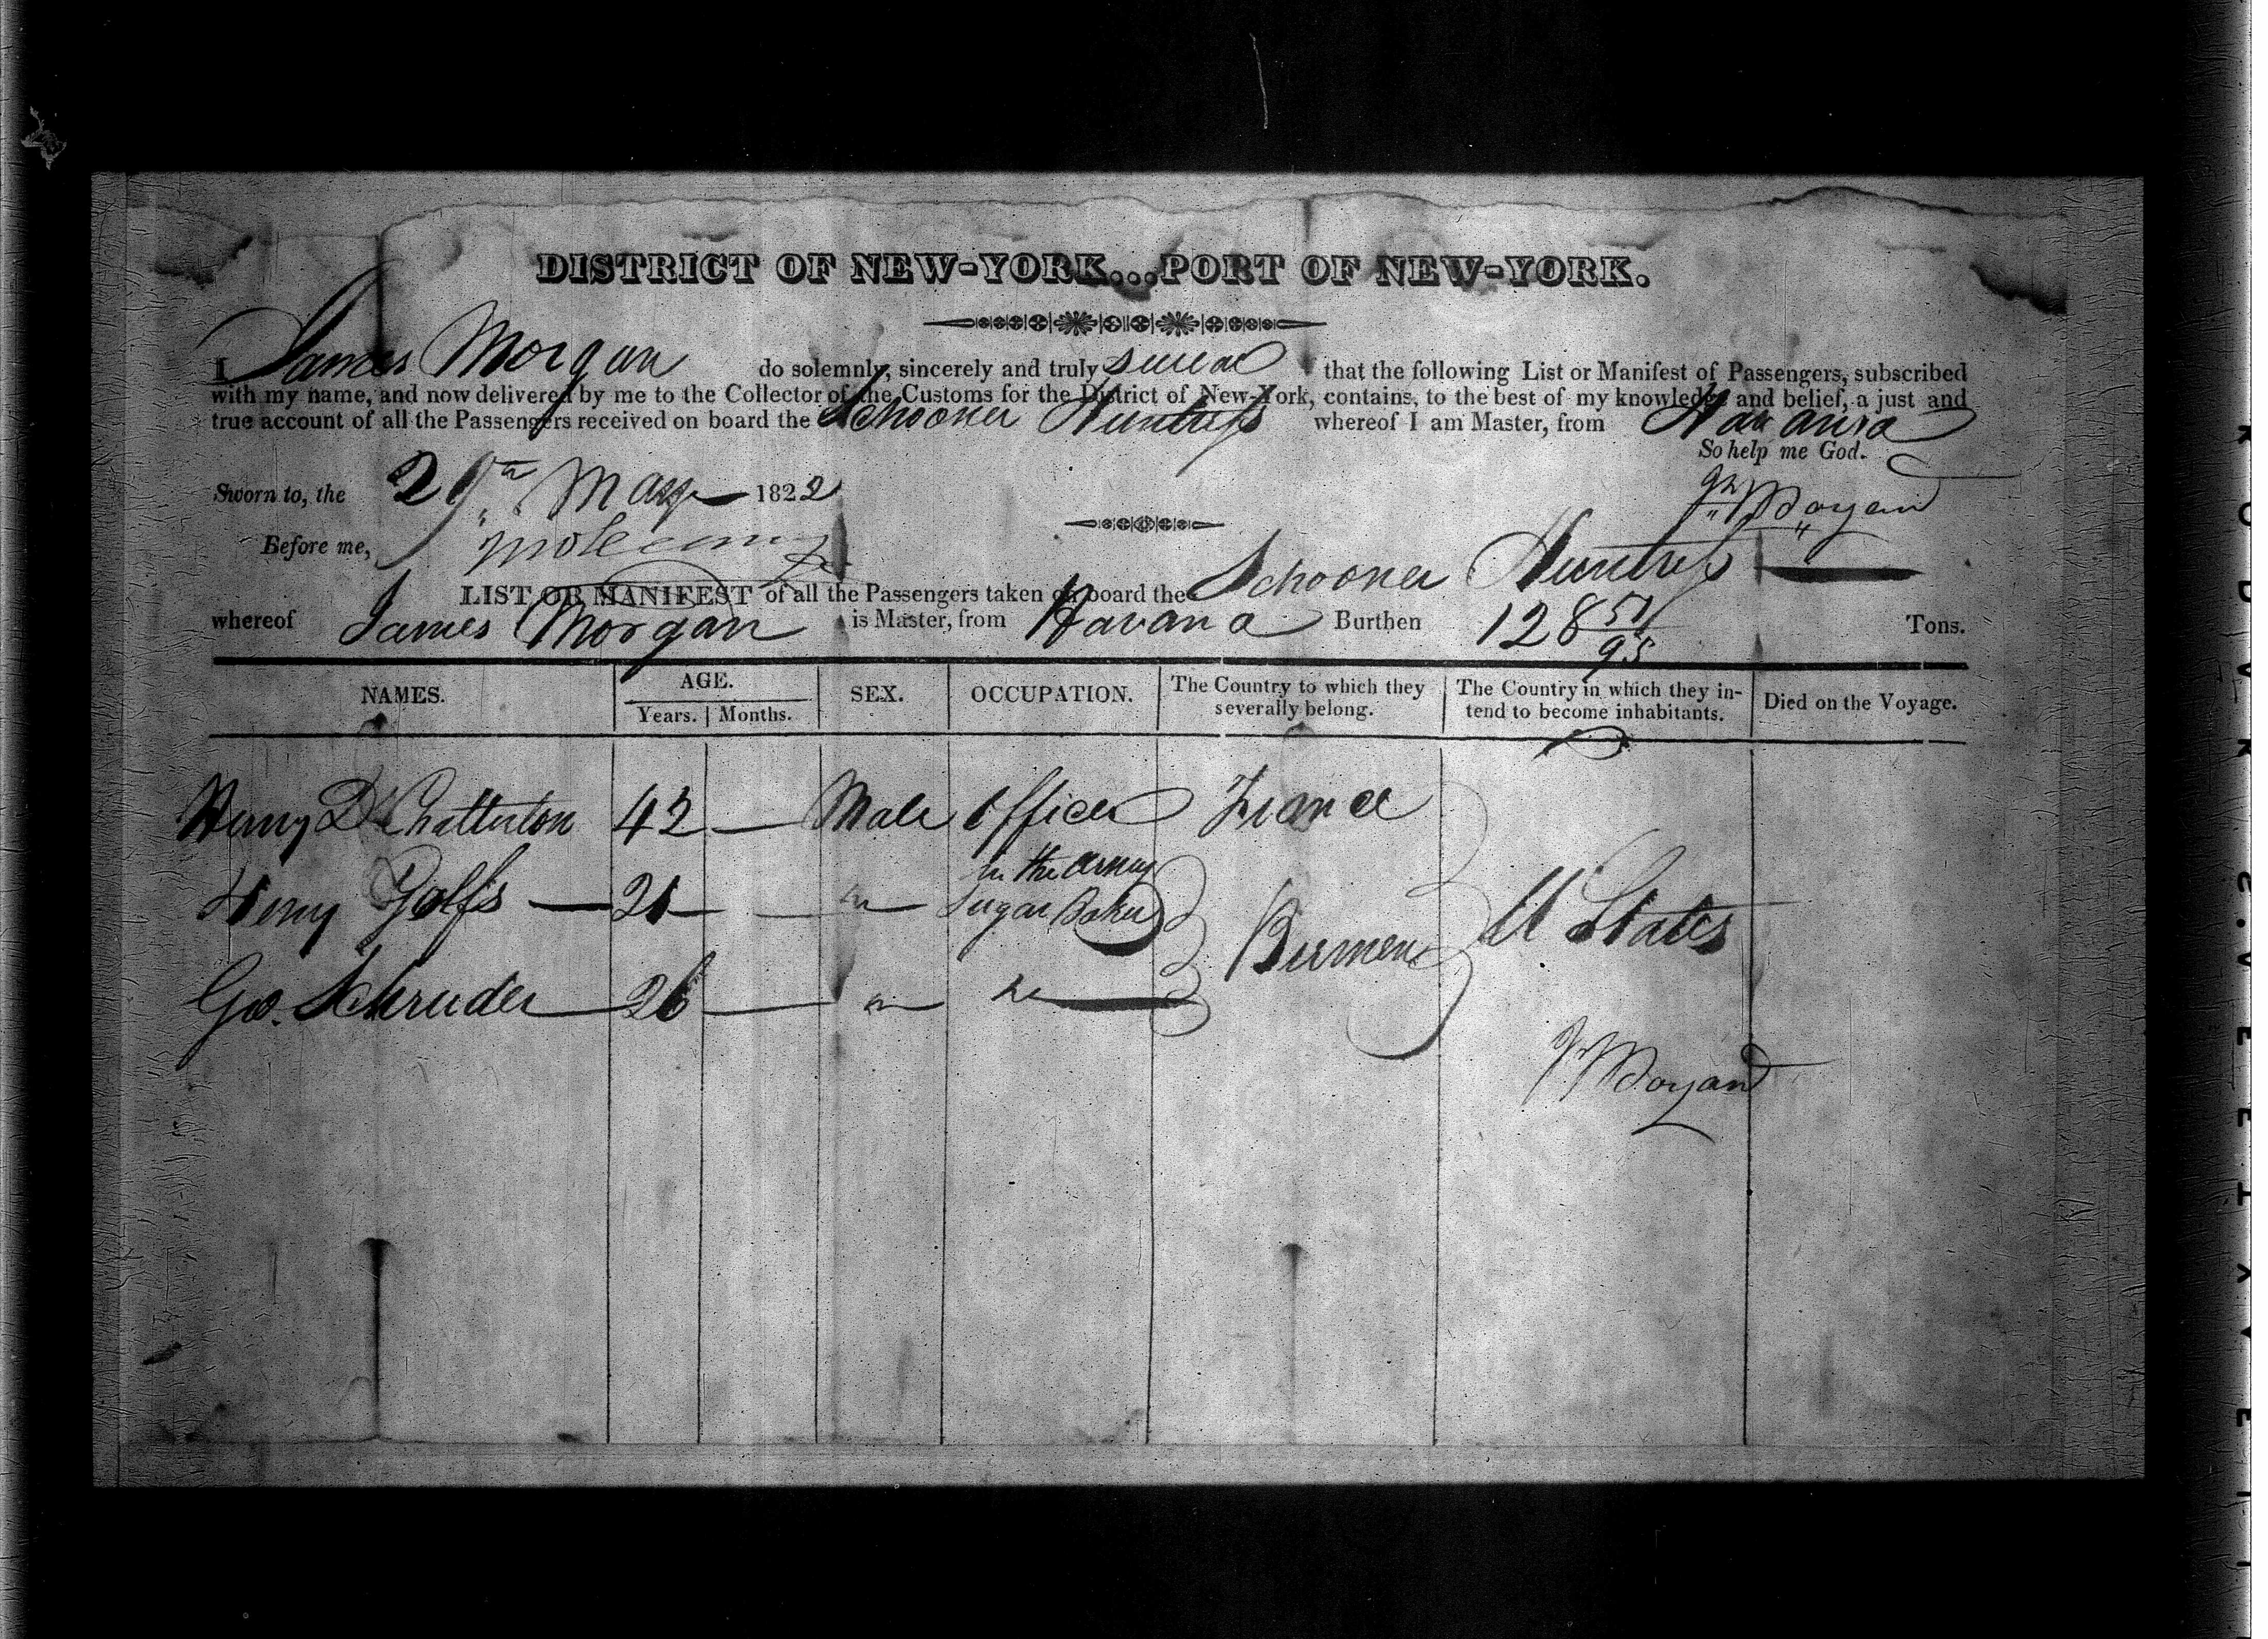 DISTRICT OF NEW-YORK...PORT OF NEW-YORK.
I James Morgan do solemnly, sincerely and truly swear that the following List or Manifest of Passengers, subscribed
with my name, and now delivered by me to the Collector of the Customs for the District of New-York, contains, to the best of my knowledge and belief, a just and
true account of all the Passengers received on board the Schooner Huntress whereof I am Master, from Havanna
So help me God.
Sworn to, the 29th May 1822
Js Morgan
Before me,
LIST OR MANIFEST of all the Passengers taken on board the Schooner Huntress
whereof James Morgan is Master, from Havana Burthen 128 51/95 Tons.
NAMES. AGE. Years. Months. SEX. OCCUPATION. The Country to which they severally belong. The Country in which they intend to become inhabitants. Died on the Voyage.
Henry D Chatterton 42 — Male Officer France
in the army
Henry Golfs — 21 — Sugar Baker
Bremen U States
Geo. Schruder 26 —
Js Morgan